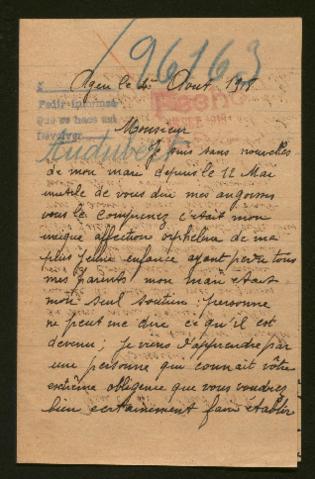 96163
Agen le 4 Aout 1918
Pedir informes
Que se hace en
Devolver
Monsieur
Audubert
Je suis sans nouvelles
de mon mari depuis le 12 Mai
inutile de vous dire mes angoisses
vous le comprenez c'etait mon
unique affection orpheline de ma
plus jeune enfance ayant perdu tous
mes parents mon mari etait
mon seul soutien; personne
ne peut me dire ce qu'il est
devenu; je viens d'apprendre par
une personne qui connait vôtre
extrême obligence que vous voudrez
bien certainement faire etablir